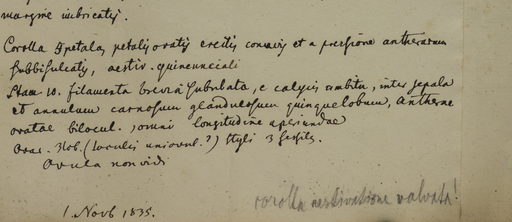 margine imbricatis.
Corolla 5petala, petalis ovatis erectis concavis et a pressione antherarum
subbisulcatis, aestiv. quincunciali
Stam 10. filamenta brevia subulata, e calycis ambitu, inter sepala
et annulum carnosum glandulosum quinquelobum, antherae
ovatae bilocul., omni longitudine aperiundae
Ovar. 3lob. (loculis uniovul.?) styli 3 sessiles.
Ovula non vidi
1 Novb 1835.
corolla aestivatione valvata!